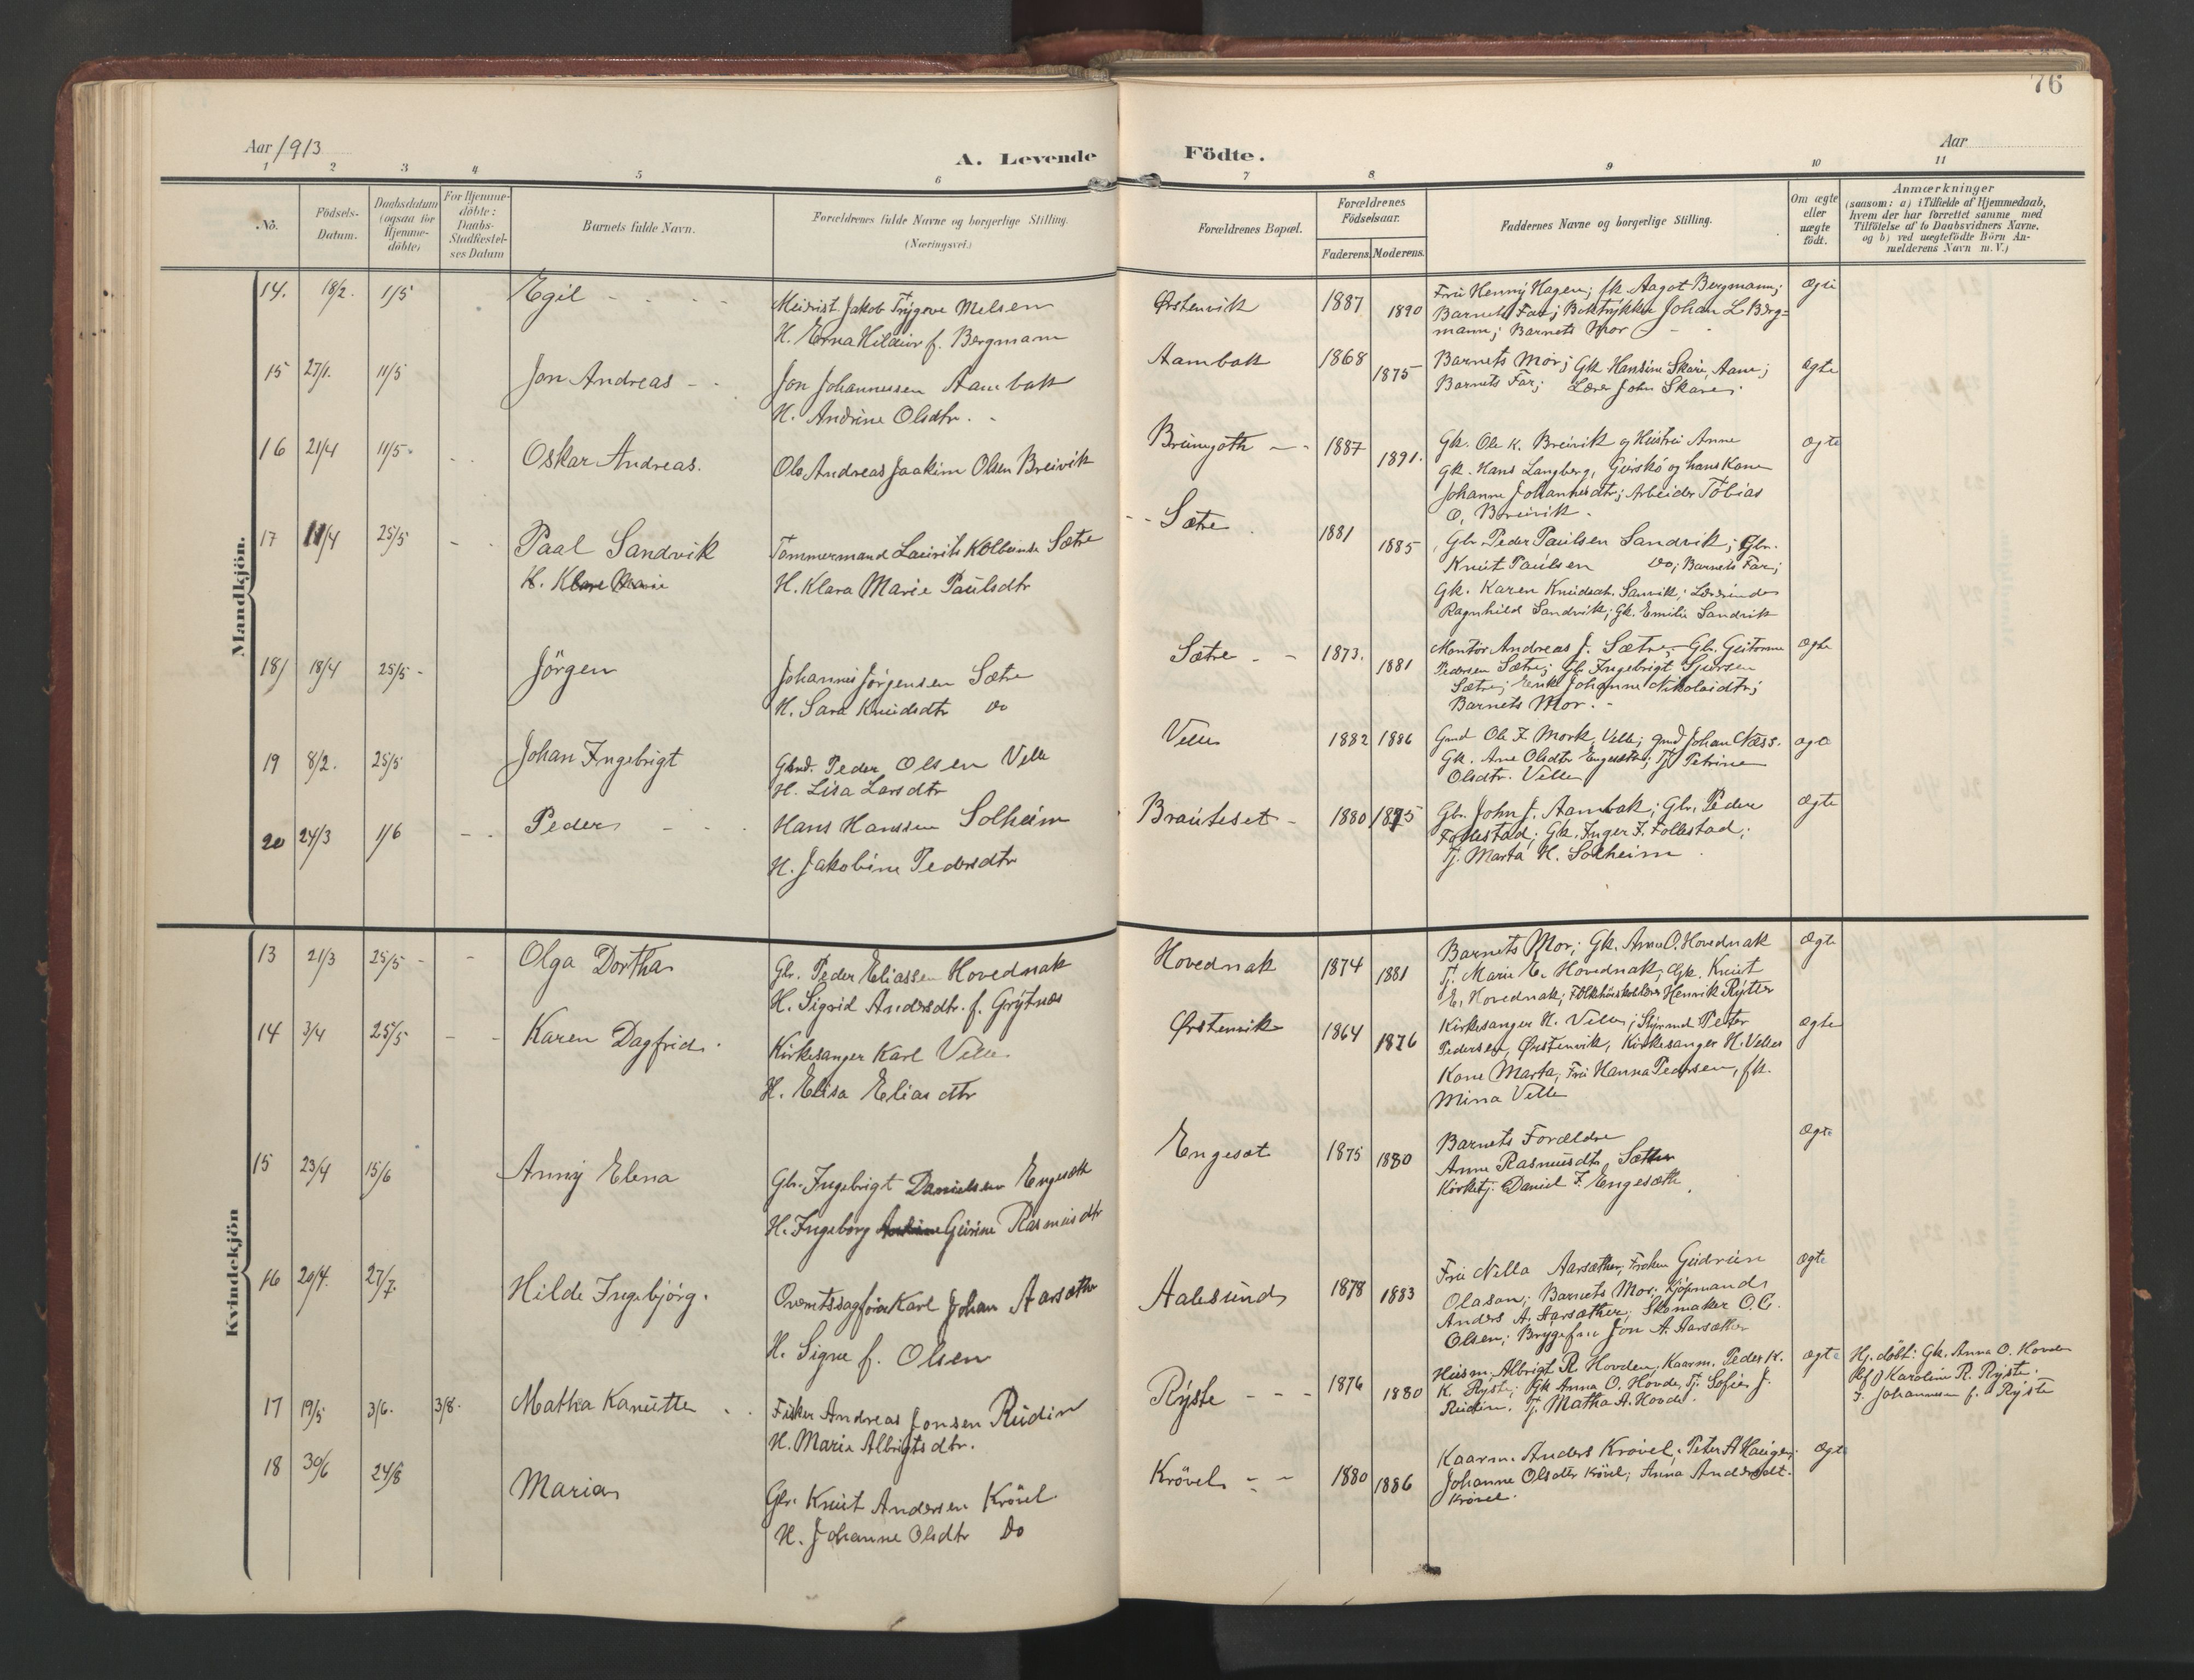 76
Aar 1913
A. Levende Födte.
Aar
1 2 3 4 5 6 7 8 9 10 11
No.
Födsels-Datum.
Daabsdatum (ogsaa for Hjemme-döbte)
For Hjemme-döbte: Daabs-Stadfestel-ses Datum
Barnets fulde Navn.
Forældrenes fulde Navne og borgerlige Stilling. (Næringsvei.)
Forældrenes Bopæl.
Forældrenes Födselsaar.
Faderens. Moderens.
Faddernes Navne og borgerlige Stilling.
Om ægte eller uægte födt.
Anmærkninger
(saasom: a) i Tilfælde af Hjemmedaab,
hvem der har forrettet samme med
Tilföielse af to Daabsvidners Navne,
og b) ved uægtefödte Börn An-
melderens Navn m. V.)
Mandkjön.
14. 18/2. 1/5 Egil
Meierist Jakob Trygve Melsen
H. Erna Hildur f. Bergmann
Ørstenvik 1887 1890
Fru Henny Hagen; frk. Aagot Bergmann;
Barnets Far; Boktrykker Johan L Berg=
mann; Barnets Mor
ægte
15 27/1. 11/5 Jon Andreas
Jon Johannessen Aambakk
H. Andrine Olsdtr.
Aambakk 1868 1875
Barnets Mor; Gk. Hansine Skare, Aam;
Barnets Far; Lærer John Skare;
ægte
16 21/4 11/5 Oskar Andreas.
Ole Andreas Joakim Olsen Breivik
Brungoth 1887 1891.
Gk. Ole K. Breivik og Hustru Anne
Gk. Hans Langberg, Gurskö og hans Kone
Johanne Johannesdtr; Arbeider Tobias
O. Breivik.
ægte
17 11/4 25/5 Paal Sandvik
H. Klara Marie
Tømmermand Laurits Kolbeinsen Sætre
H. Klara Marie Paulsdtr
Sætre 1881 1885
Gbr. Peder Paulsen Sandvik; Gbr.
Knut Paulsen Do; Barnets Far;
Gk. Karen Knudsdtr. Sanvik; Lærerinde
Ragnhild Sandvik; Gk. Emilie Sandvik
18 18/4 25/5 Jörgen
Johannes Jørgensen Sætre
H. Sara Knudsdtr Do
Sætre 1873. 1881
Montør Andreas J. Sætre; Gbr. Guttorm
Pedersen Sætre; Gk. Ingebrigt Sjursen
Sætre; Enke Johanne Nikolaidtr;
Barnets Mor.
ægte
19 8/2. 25/5 Johan Ingebrigt
Gbrd. Peder Olsen Velle
H. Lisa Larsdtr
Velle 1882 1886
Gmd Ole F. Mork, Velle; gmd Johan Næss.
Gk. Ane Olsdtr Engesæth; Tj. Petrine
Olsdtr. Velle
ægte
20 24/3 1/6 Peder
Hans Hanssen Solheim
H. Jakobine Pedersdtr
Brauteset 1880 1875
Gbr. John J. Aambak; Gbr. Peder
Follestad; Gk. Inger F. Follestad;
Tj. Marta H. Solheim
ægte
Kvindekjön
13 21/3 25/5 Olga Dorthea
Gbr. Peder Eliassen Hovednak
H. Sigrid Andersdtr. f. Grytnes
Hovednak 1874 1881
Barnets Mor; Gk. Anne O. Hovednak
Tj. Marie E. Hovednak; Gk. Knut
E. Hovednak; Folkhöiskolelærer Henrik Rytter
ægte
14 3/4 25/5 Karen Dagfrid.
Kirkesanger Karl Velle
H. Elisa Eliasdtr
Ørstenvik 1864 1876
Kirkesanger H. Velle; Styrmd Peter
Pedersen, Ørstenvik, Kirkesanger H. Velles
Kone Marta; Fru Hanna Pedersen, frk.
Mina Velle
ægte
15 23/4 15/6 Anny Elena
Gbr. Ingebrigt Danielsen Engesæth
H. Ingeborg Gurine Rasmusdtr
Engeset 1875 1880
Barnets Forældre
Anne Rasmusdtr Sætre
Kirketj. Daniel F. Engesæth.
ægte
16 20/4. 27/7. Hilde Ingebjörg.
Overretssagfører Karl Johan Aarsæther
H. Signe f. Olsen
Aalesund 1878 1883
Fru Nella Aarsæther, Frøken Gudrun
Olason; Barnets Mor; Kjøpmand
Anders A. Aarsæther; Skomaker O. C.
Olsen; Jon A. Aarsæther
ægte
17 19/5 3/6. 3/8. Mathea Kanutte
Fisker Andreas Jonsen Rudin
H. Maria Albrigtsdtr.
Ryste 1876 1880
Husm. Albrigt R. Hovden, Kaarm. Peder K.
K. Ryste; Gk Anna O. Hovde, Tj. Sofie J.
Rudin. Tj. Mathea A. Hovde.
ægte
Hj. döbt: Gk. Anna O. Hovde
Karoline R. Ryste.
J. Johannesen f. Ryste
18 30/6 24/8 Maria
Gbr. Knut Andersen Krövel
H. Johanne Olsdtr Do
Krövel 1880 1886
Kaarm. Anders Krövel; Peter A Haugen;
Johanne Olsdtr Krövel; Anna Andersdt.
Krövel.
ægte